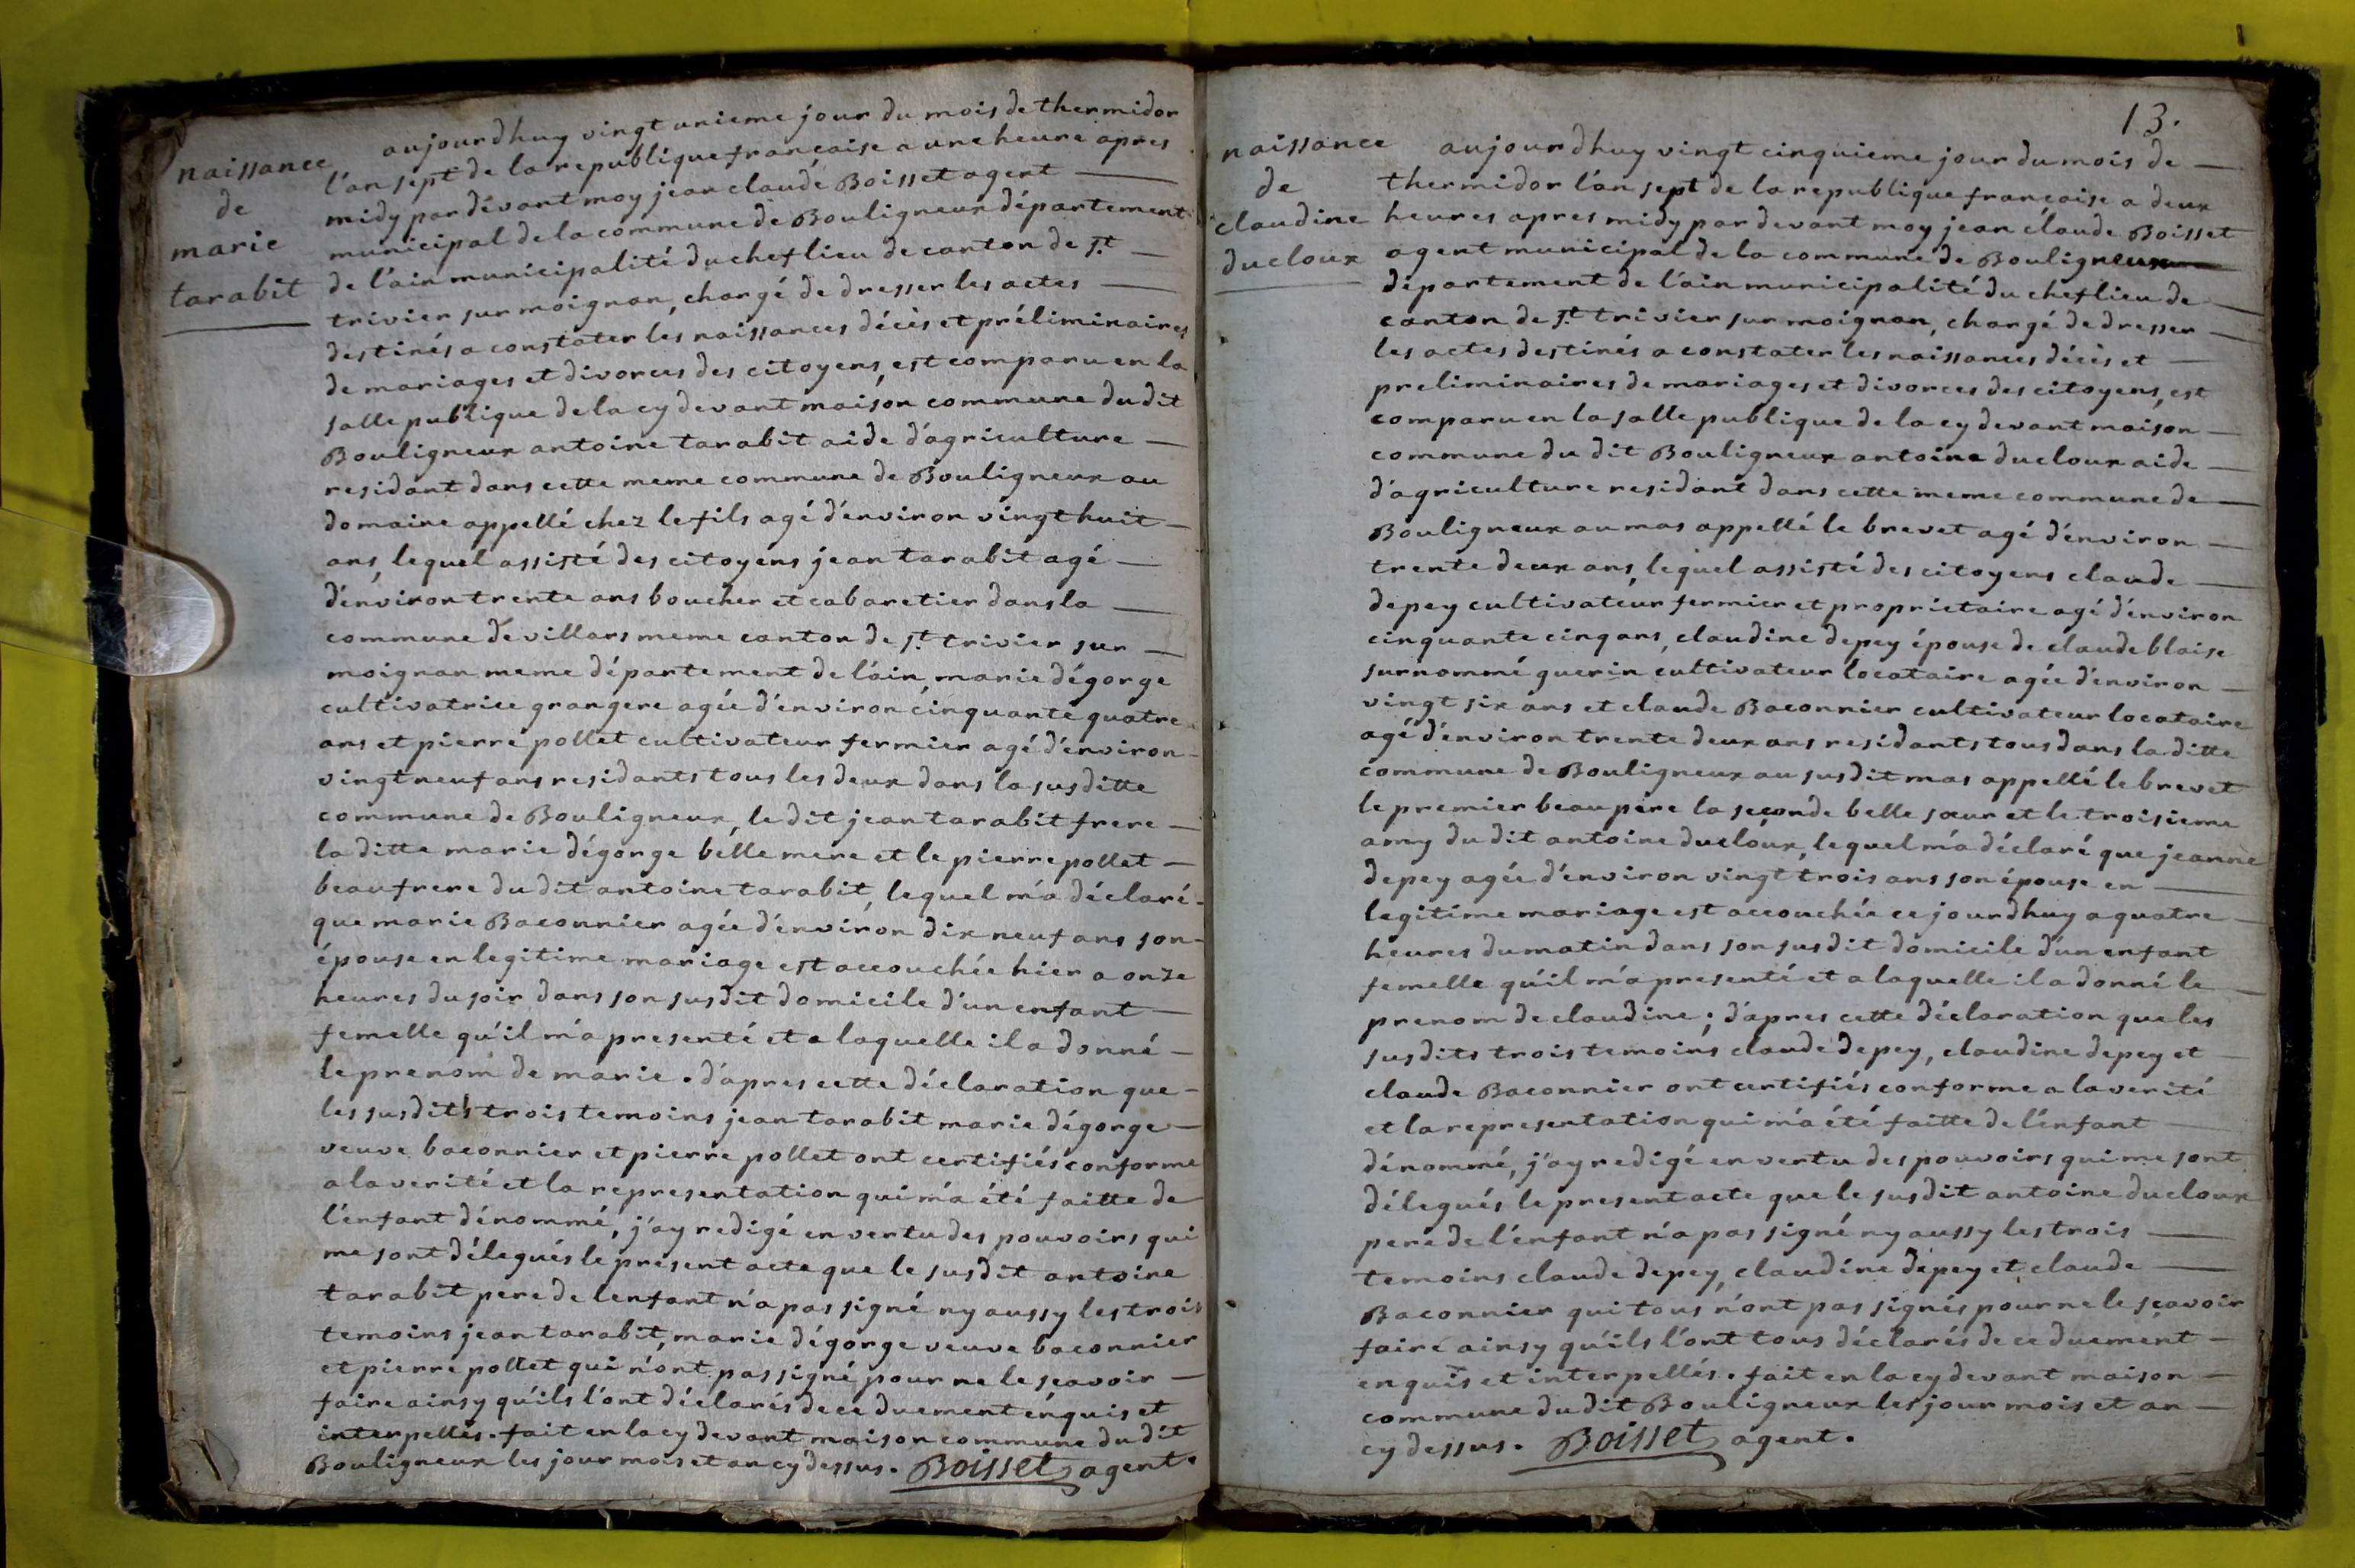 naissance
de
marie
tarabit
aujourdhuy vingt unieme jour du mois de thermidor
l'an sept de la republique française a une heure apres
midy par dévant moy jean claude Boisset agent
municipal de la commune de Bouligneux département
de l'ain municipalité du chef lieu de canton de st
trivier sur moignan, chargé de dresser les actes
destinés a constater les naissances décès et préliminaires
de mariages et divorces des citoyens, est comparu en la
salle publique de la cy devant maison commune du dit
Bouligneux antoine tarabit aide d'agriculture
residant dans cette meme commune de Bouligneux au
domaine appellé chez le fils agé d'environ vingt huit
ans, lequel assisté des citoyens jean tarabit agé
d'environ trente ans boucher et cabaretier dans la
commune de villars meme canton de st trivier sur
moignan meme département de l'ain, marie dégorge
cultivatrice grangere agée d'environ cinquante quatre
ans et pierre pollet cultivateur fermier agé d'environ
vingt neuf ans residants tous les deux dans la susditte
commune de Bouligneux, le dit jean tarabit frere
la ditte marie dégorge belle mere et le pierre pollet
beaufrere du dit antoine tarabit, lequel m'a déclaré
que marie Baconnier agée d'environ dix neuf ans son
épouse en legitime mariage est accouchée hier a onze
heures du soir dans son susdit domicile d'un enfant
femelle qu'il m'a presenté et a laquelle il a donné
le prenom de marie. d'apres cette déclaration que
les susdits trois temoins jean tarabit marie dégorge
veuve baconnier et pierre pollet ont certifiés conforme
a la verité et la representation qui m'a été faitte de
l'enfant dénommé, j'ay redigé en vertu des pouvoirs qui
me sont délegués le present acte que le susdit antoine
tarabit pere de l'enfant n'a pas signé ny aussy les trois
temoins jean tarabit, marie dégorge veuve baconnier
et pierre pollet qui n'ont pas signé pour ne le sçavoir
faire ainsy qu'ils l'ont déclarés de ce duement enquis et
interpellés. fait en la cy devant maison commune du dit
Bouligneux les jour mois et an cy dessus. Boisset agent.
13.
naissance
de
claudine
ducloux
aujourdhuy vingt cinquieme jour du mois de
thermidor l'an sept de la republique française a deux
heures apres midy par devant moy jean claude Boisset
agent municipal de la commune de Bouligneux
département de l'ain municipalité du chef lieu de
canton de st trivier sur moignan, chargé de dresser
les actes destinés a constater les naissances décès et
preliminaires de mariages et divorces des citoyens, est
comparu en la salle publique de la cy devant maison
commune du dit Bouligneux antoine ducloux aide
d'agriculture residant dans cette meme commune de
Bouligneux au mas appellé le brevet agé d'environ
trente deux ans, lequel assisté des citoyens claude
depey cultivateur fermier et proprietaire agé d'environ
cinquante cinq ans, claudine depey épouse de claude blaise
surnommé guerin cultivateur locataire agée d'environ
vingt six ans et claude Baconnier cultivateur locataire
agé d'environ trente deux ans residants tous dans la ditte
commune de Bouligneux au susdit mas appellé le brevet
le premier beau pere la seconde belle sœur et le troisieme
amy du dit antoine ducloux, lequel m'a déclaré que jeanne
depey agée d'environ vingt trois ans son épouse en
legitime mariage est accouchée ce jourdhuy a quatre
heures du matin dans son susdit domicile d'un enfant
femelle qu'il m'a presenté et a laquelle il a donné le
prenom de claudine; d'apres cette déclaration que les
susdits trois temoins claude depey, claudine depey et
claude Baconnier ont certifiés conforme a la verité
et la representation qui m'a été faitte de l'enfant
dénommé, j'ay redigé en vertu des pouvoirs qui me sont
délegués le present acte que le susdit antoine ducloux
pere de l'enfant n'a pas signé ny aussy les trois
temoins claude depey, claudine depey et claude
Baconnier qui tous n'ont pas signés pour ne le sçavoir
faire ainsy qu'ils l'ont tous déclarés de ce duement
enquis et interpellés. fait en la cy devant maison
commune du dit Bouligneux les jour mois et an
cy dessus. Boisset agent.